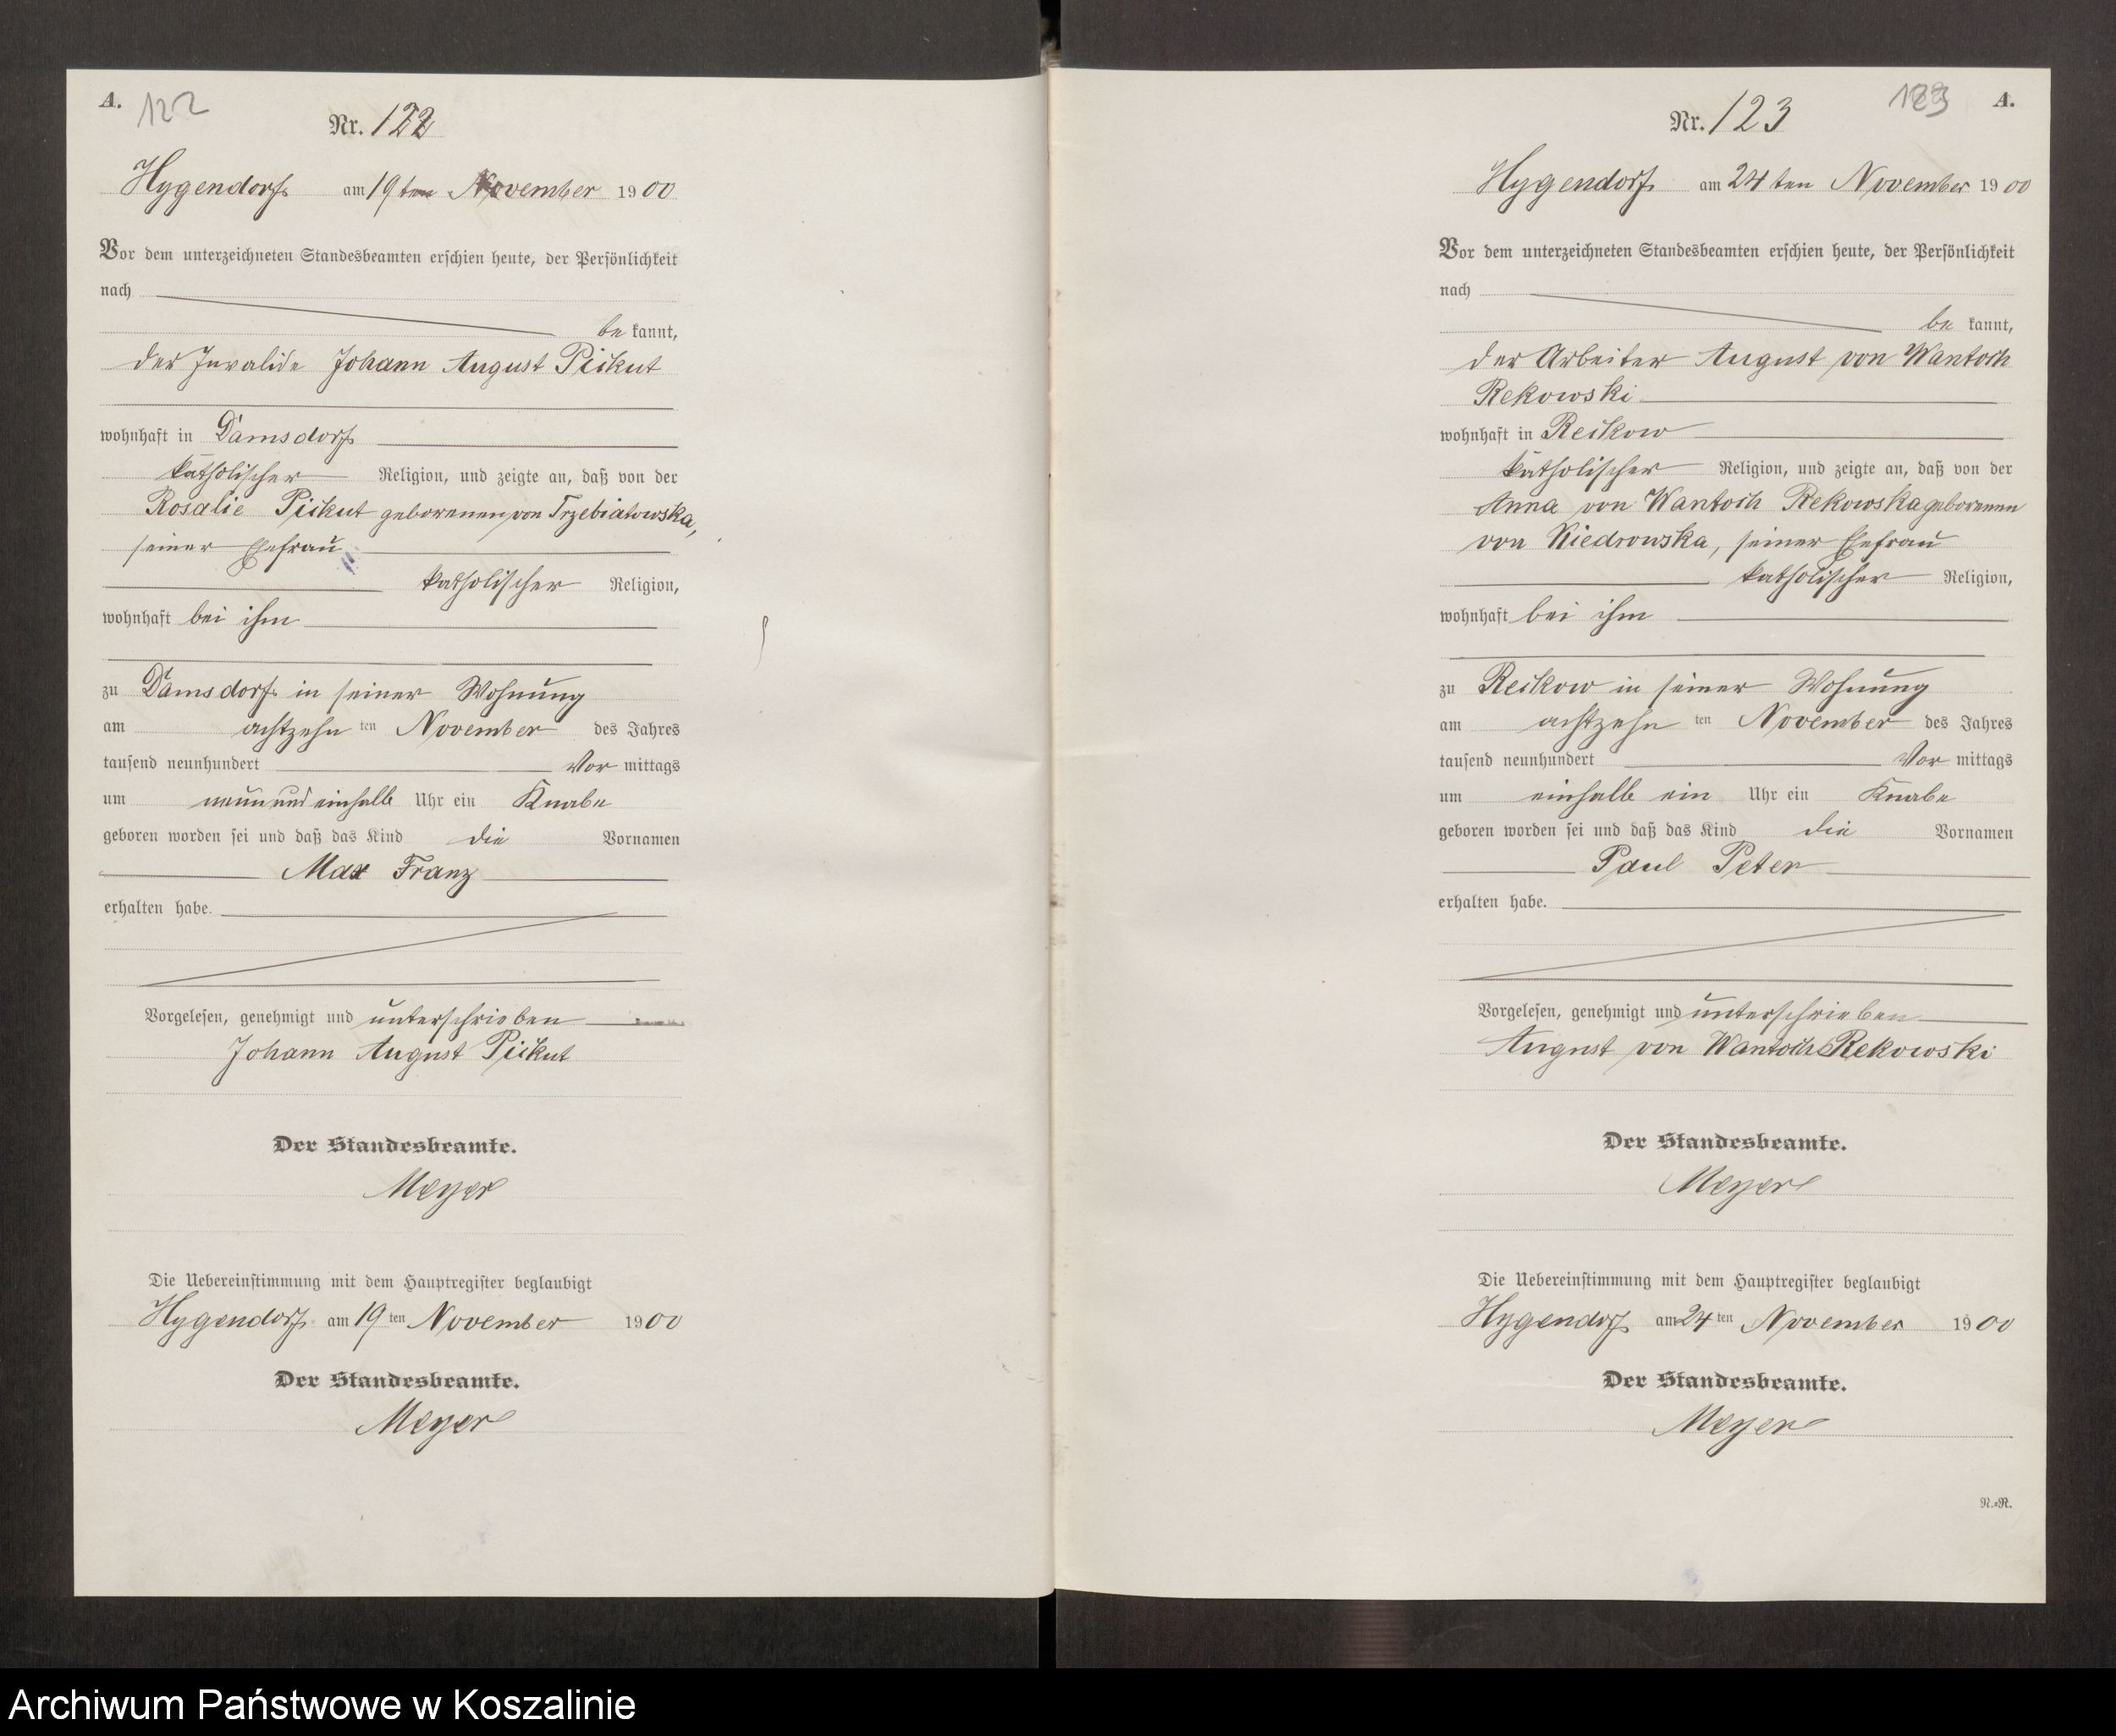 A.
122
Nr. 122
Hygendorf am 19 ten November 1900
Vor dem unterzeichneten Standesbeamten erschien heute, der Persönlichkeit
nach
be kannt,
der Invalide Johann August Piekut
wohnhaft in Damsdorf
katholischer Religion, und zeigte an, daß von der
Rosalie Piekut geborenen von Trzebiatowska,
seiner Ehefrau
katholischer Religion,
wohnhaft bei ihm
zu Damsdorf in seiner Wohnung
am achtzehn ten November des Jahres
tausend neunhundert Vor mittags
um neun und einhalb Uhr ein Knabe
geboren worden sei und daß das Kind die Vornamen
Max Franz
erhalten habe.
Vorgelesen, genehmigt und unterschrieben
Johann August Piekut
Der Standesbeamte.
Meyer
Die Uebereinstimmung mit dem Hauptregister beglaubigt
Hygendorf am 19 ten November 1900
Der Standesbeamte.
Meyer
123
A.
Nr. 123
Hygendorf am 24 ten November 1900
Vor dem unterzeichneten Standesbeamten erschien heute, der Persönlichkeit
nach
be kannt,
der Arbeiter August von Wantoch
Rekowski
wohnhaft in Reckow
katholischer Religion, und zeigte an, daß von der
Anna von Wantoch Rekowska geborenen
von Kiedrowska, seiner Ehefrau
katholischer Religion,
wohnhaft bei ihm
zu Reckow in seiner Wohnung
am achtzehn ten November des Jahres
tausend neunhundert Vor mittags
um einhalb ein Uhr ein Knabe
geboren worden sei und daß das Kind die Vornamen
Paul Peter
erhalten habe.
Vorgelesen, genehmigt und unterschrieben
August von Wantoch Rekowski
Der Standesbeamte.
Meyer
Die Uebereinstimmung mit dem Hauptregister beglaubigt
Hygendorf am 24 ten November 1900
Der Standesbeamte.
Meyer
N.=R.
Archiwum Państwowe w Koszalinie